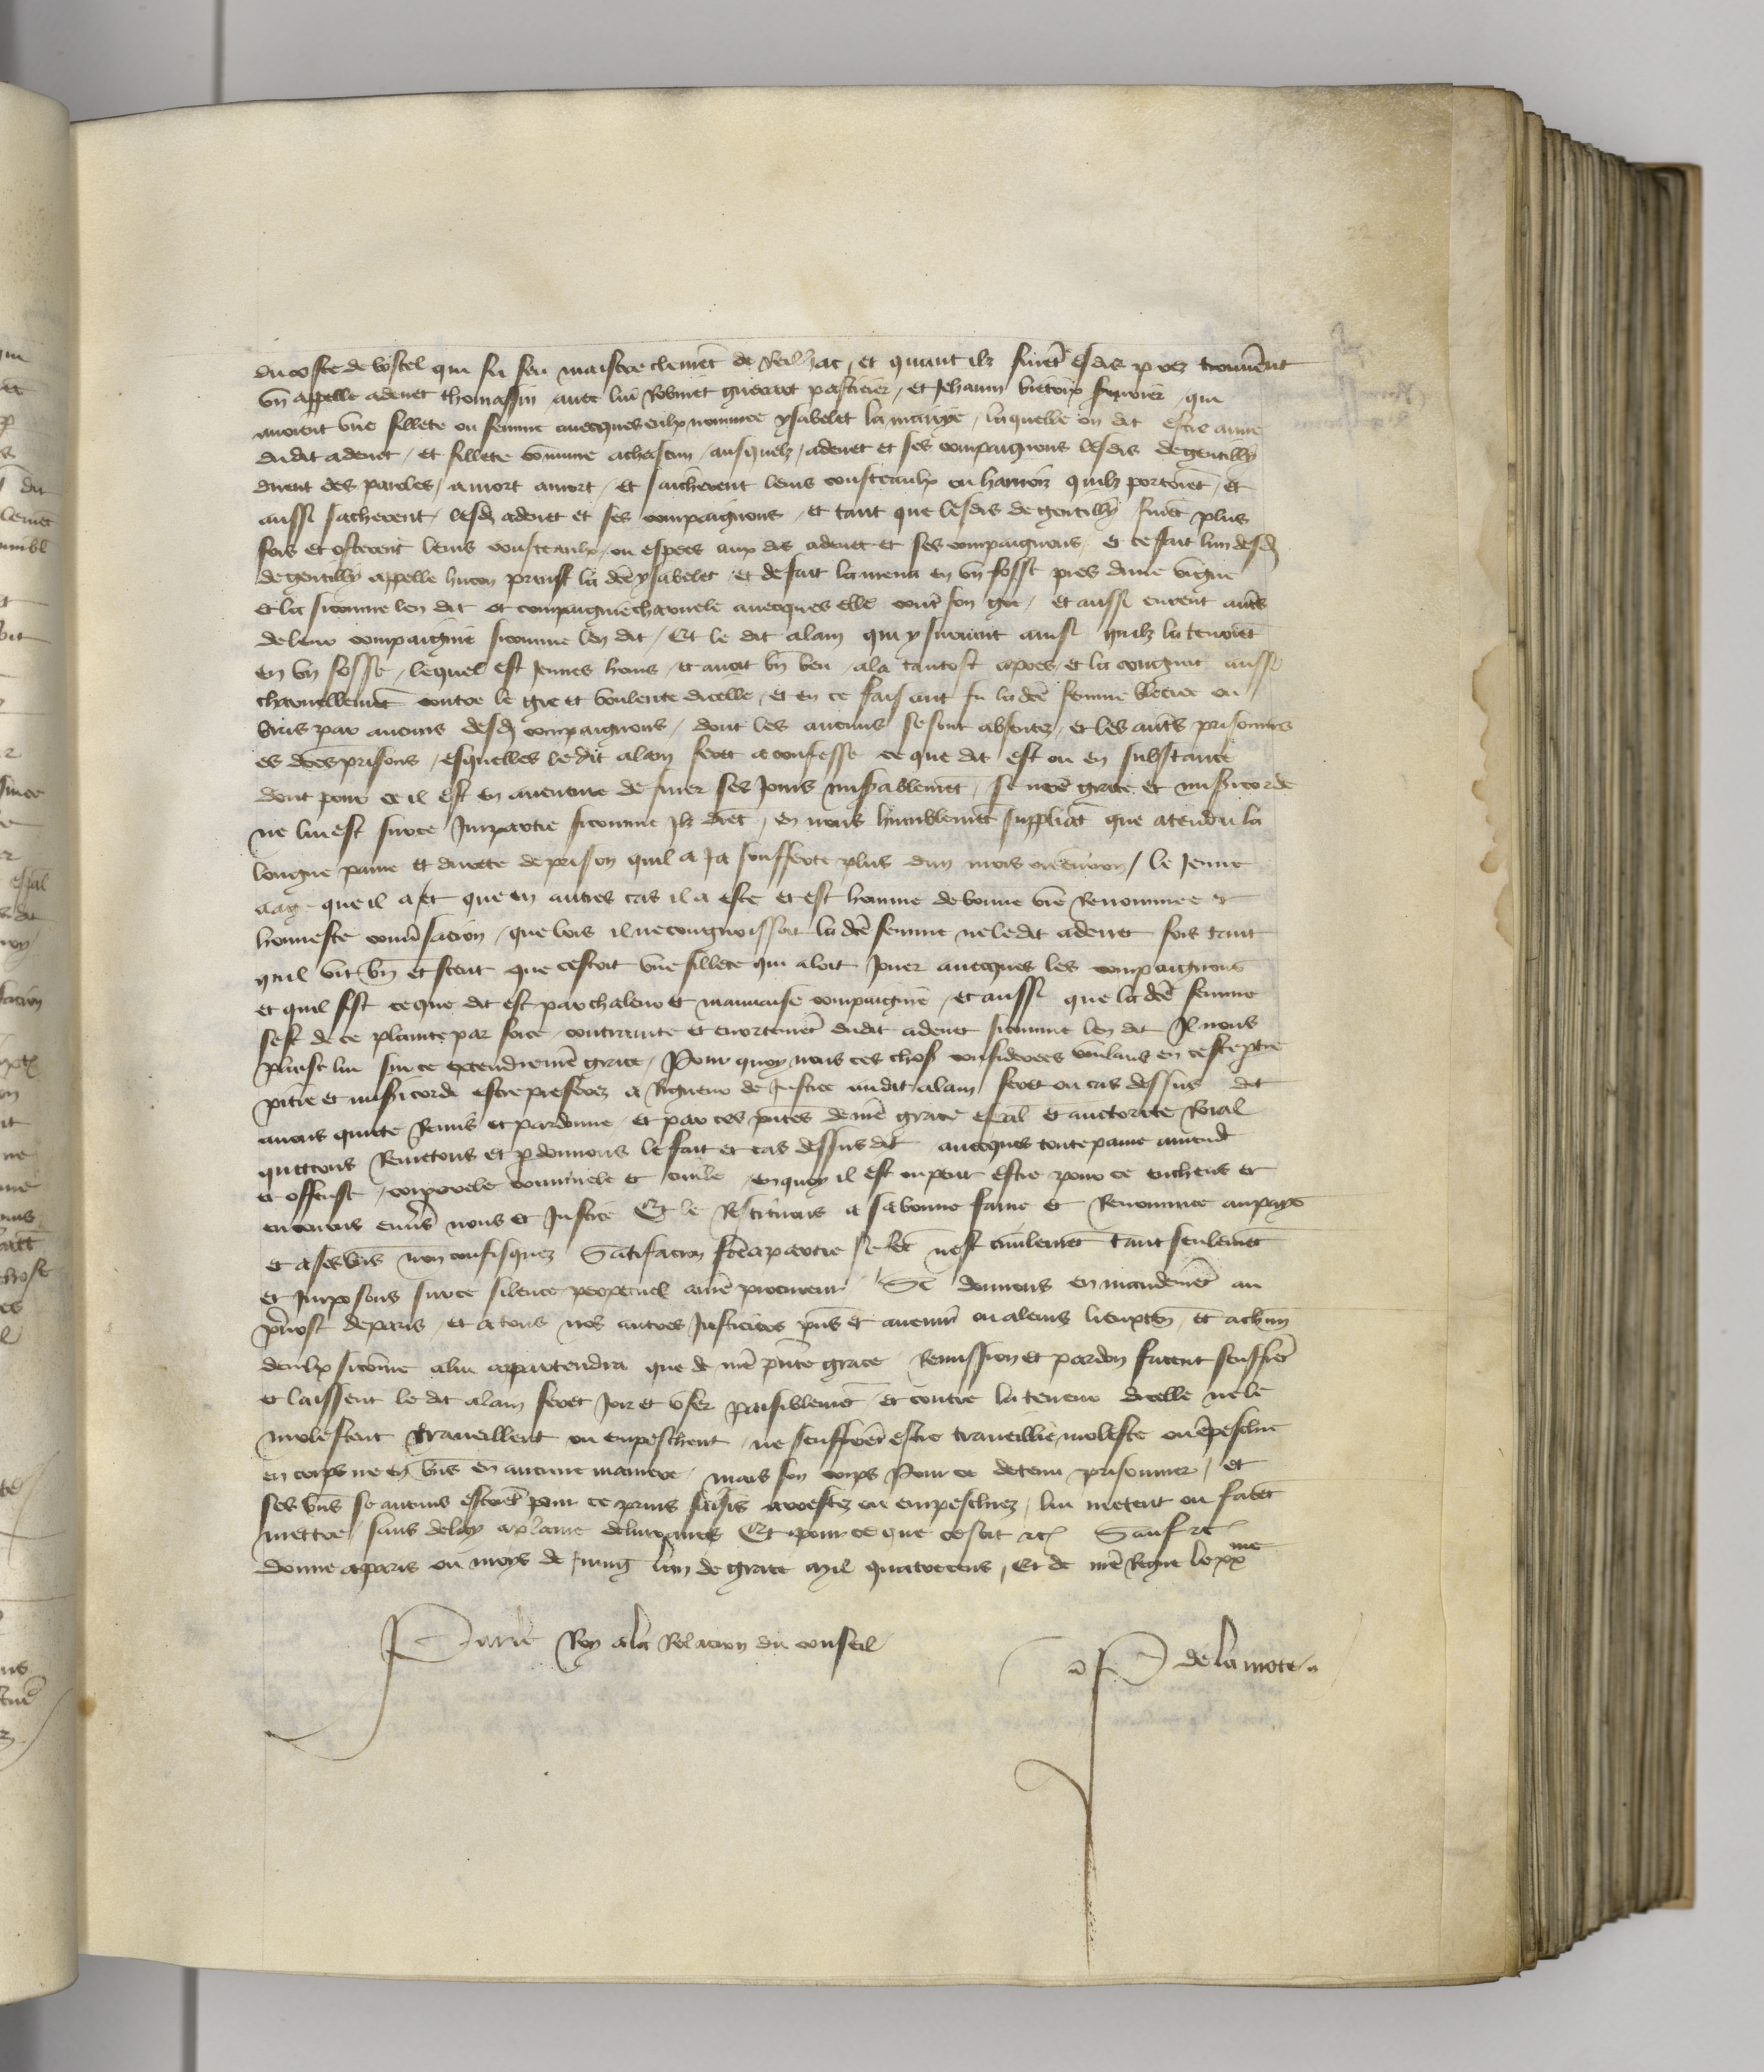 du coste de lostel qui fu feu maistre clemet de Reilhac, et quant ilz furet esdis prez trouverent
un appelle adenet thomassin avec lui Robinet guerart pasticier, et Jehanin fournier qui
avoient une fillete ou femme avecques eulx nommee ysabelet la mairye, laquelle on dit estre amie
dudit adenet, et fillete comune a chascun, ausquelz adenet et ses compaignons lesdis de gentilly
dirent des paroles, a mort a mort, et saicherent leurs cousteaulx ou harnois quilz portoiet, et
aussi sacherent lesd adenet et ses compaignons, et tant que lesdis de gentilly furet plus
fors et osterent leurs cousteaulx ou espees aux dis adenet et ses compaignons, et ce fait lun desd
de gentilly appelle hucon prinst la dce ysabelet, et de fait lamena en un fosse pres dune vigne
et la sicomme len dit ot compaignie charnele avecques elle contre son gre, et aussi eurent autres
de leur compaignie sicomme len dit, Et le dit alain qui y survint ainsi quilz la tenoiet
en un fosse, lequel est jeunes homs, et avoit bn beu, ala tantost apres, et la congnut aussi
charnellemet contre le gre et voulente dicelle, et en ce faisant fu la dce femme blecee ou
bras par aucuns desd compaignons, dont les aucuns se sont absentez, et les autres prisonniers
es dces prisons, esquelles ledit alain feret a confesse ce que dit est ou en substance
dont pour ce il est en aventure de finer ses jours miserablemet, se nre grace et misericorde
ne lui est sur ce Impartie sicomme Ilz diet, en nous humblemet suppliat que atendu la
longue paine et durete de prison quil a ja soufferte plus dun mois ou environ, le jeune
aage que il a, et que en autres cas il a este et est homme de bonne vie Renommee et
honneste conversacion, que lors il ne congnoissoit la dce femme ne ledit adenet fors tant
quil vit bn et scent que cestoit une fillete qui aloit jouer avecques les compaignons
et quil fist ce que dit est par chaleur et mauvaise compaignie, et aussi que la dce femme
sest de ce plainte par force contrainte et enortemet dudit adenet sicomme len dit Il nous
plaise lui sur ce extendre nre grace, Pour quoy nous ces choses considerees voulans en ceste ptie
pitie et misericorde estre preferez a Rigueur de justice audit alain feret ou cas dessus dit
avons quicte Remis et pardonne, et par ces pntes de nre grace espal et auctorite Roial
quictons Remetons et pdonnons le fait et cas dessusdit avecques toute paine amende
et offense, corporele criminele et civile, en quoy il est ou peut estre pour ce encheus et
encourus envers nous et justice Et le Restituons a sa bonne fame et Renommee au pays
et a ses biens non confisquez Satifacion fcea partie se fce nest civilemet tant seulemet
et Imposons sur ce silence perpetuel a nre procureur Si donnons en mandemet au
prevost de paris, et a tous nos autres justiciers pns et avenir ou a leurs lieuxten, et a chun
deulx sicome a lui appartendra que de nre pnte grace Remission et pardon facent seuffret
et laissent le dit alain feret joir et user paisiblemet, et contre la teneur dicelle ne le
molestent traveillent ou empeschent, ne seuffret estre traveillie, moleste ou epeschie
en corps ne en biens en aucune maniere, mais son corps Pour ce detenu prisonnier, et
ses biens se aucuns estoiet pour ce prins saisis arrestez ou empeschiez, lui metent ou facet
mettre sans delay a plaine delivrance Et pour ce que ce soit etc Sauf etc
donne a paris ou moys de juing lan de grace mil quatrecens, Et de nre Regne le xxme
Par le Roy a la Relacion du conseil
P de la mote